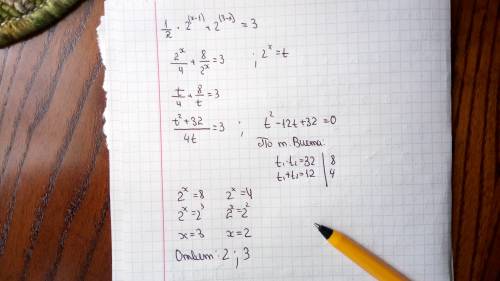 1/2 · 2^(x-1) + 2^(3-x) = 3
2^x/4 + 8/2^x = 3 ; 2^x = t
t/4 + 8/t = 3
(t^2+32)/4t = 3 ; t^2 - 12t + 32 = 0
По т. Виета:
t₁·t₂=32 | 8
t₁+t₂=12 | 4
2^x=8 2^x=4
2^x=2^3 2^x=2^2
x=3 x=2
Ответ: 2 ; 3